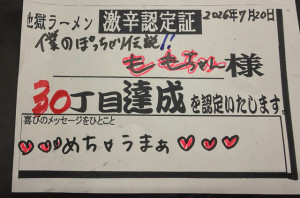 地獄ラーメン 激辛認定証 2026年7月20日
僕のぽっちゃり伝記!!
ももちゃん様
30丁目達成を認定いたします。
喜びのメッセージをひとこと
♡♡♡めちゃうまぁ♡♡♡